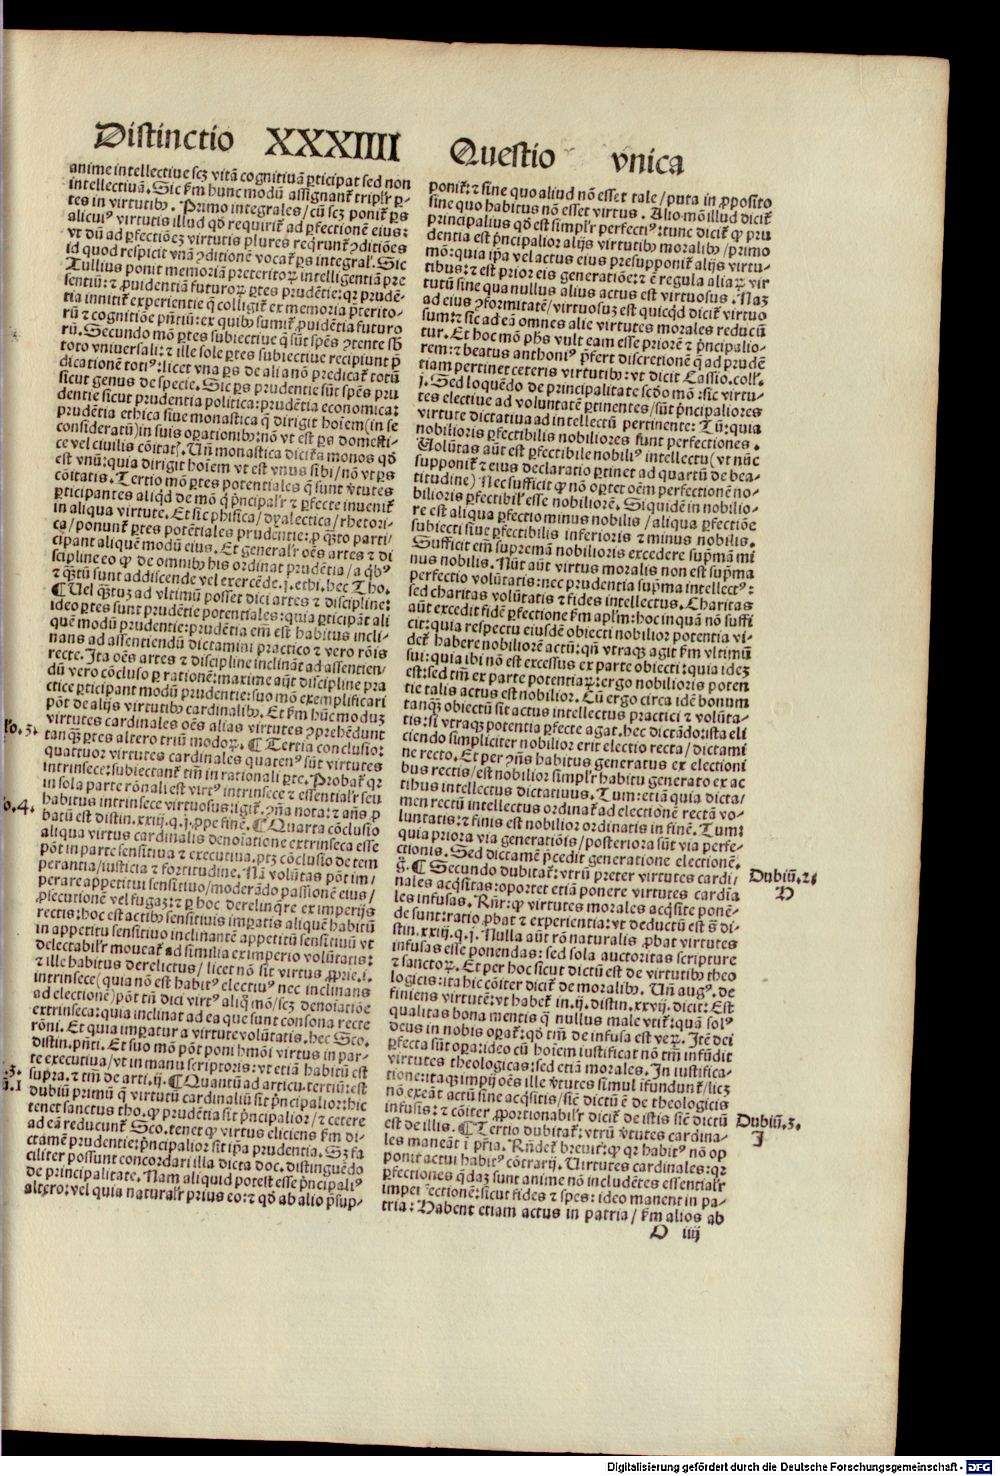 Distinctio XXXIIII Questio vnica
anime intellectiue scꝫ vitã cognitiuã ꝑticipat sed non
intellectiuã. Sic ẜm hunc modũ assignant᷑ tripl'r ꝑ-
tes in virtutibꝰ. Primo integrales/cũ scꝫ ponit᷑ ꝑs
alicuiꝰ virtutis illud qđ requirit᷑ ad ꝑfectionẽ eius:
vt dũ ad ꝑfectiõeꝫ virtutis plures reqrunt᷑ ꝯditiões
id quod respicit vnã ꝯditionẽ vocat᷑ ꝑs integral'. Sic
Tullius ponit memoriã preteritoꝝ intelligentiã pre
sentiũ: ⁊ ꝓuidentiã futuroꝝ ꝑtes prudẽtie: qꝛ prudẽ-
tia innitit᷑ experientie q̃ colligit᷑ ex memoria p̃terito-
rũ ⁊ cognitiõe pñtiũ: ex quibꝰ sumit᷑ ꝓuidẽtia futuro
rũ. Secundo mõ ꝑtes subiectiue q̃ sũt spẽs ꝯtente sb̃
toto vniuersali: ⁊ ille sole ꝑtes subiectiue recipiunt p̃
dicationẽ totiꝰ: licet vna ꝑs de alia nõ predicat᷑ totũ
sicut genus de specie. Sic ꝑs prudentie sũt spẽs pru
dentie sicut prudentia politica: prudẽtia economica:
prudẽtia ethica siue monastica q̃ dirigit hoĩem (in se
consideratũ) in suis oꝑationibꝰ: nõ vt est ꝑs domesti-
ce vel ciuilis cõitat'. Uñ monastica dicit᷑ a monos qđ
est vnũ: quia dirigit hoĩem vt est vnus sibi/nõ vt ꝑs
cõitatis. Tertio mõ ꝑtes potentiales q̃ sunt v̓tutes
ꝑticipantes aliqđ de mõ q̃ p̓ncipal'r ⁊ ꝑfecte inuenit᷑
in aliqua virtute. Et sic phisica/dyalectica/rhetori-
ca/ponunt᷑ ꝑtes potẽtiales prudentie: ꝓ q̃to parti/
cipant aliquẽ modũ eius. Et general'r oẽs artes ⁊ di
scipline eo ꝙ de omnibꝰ his ordinat prudẽtia/a qbꝰ
⁊ q̃tũ sunt addiscende vel exercẽde. j. ethi. hec Tho.
¶ Uel q̃tuꝫ ad vltimũ posset dici artes ⁊ discipline:
ideo ꝑtes sunt prudẽtie potentiales: quia ꝑticipãt ali
quẽ modũ prudentie: prudẽtia em̃ est habitus incli-
nans ad assentiendũ dictamini practico ⁊ vero rõis
recte. Ita oẽs artes ⁊ discipline inclinãt ad assentien/
dũ vero cõcluso ꝑ rationẽ: maxime aũt discipline pra
ctice ꝑticipant modũ prudentie: suo mõ exemplificari
põt de alijs virtutibꝰ cardinalibꝰ. Et ẜm hũc moduꝫ
virtutes cardinales oẽs alias virtutes ꝯprehẽdunt
tanq̃ꝫ ꝑtes altero triũ modoꝝ. ¶ Tertia conclusio:
quattuor virtutes cardinales quatenꝰ sũt virtutes
intrinsece: subiectant᷑ tm̃ in rationali ꝑte. Probat᷑ qꝛ
in sola parte rõnali est virtꝰ intrinsece ⁊ essential'r seu
habitus intrinsece virtuosus: igit᷑. ꝯña nota: ⁊ añs ꝓ
batũ est distin. xxiij. q. j. ꝓpe finẽ. ¶ Quarta cõclusio
aliqua virtus cardinalis denoĩatione extrinseca esse
põt in parte sensitiua ⁊ executiua. ptꝫ cõclusio de tem
perantia/iusticia ⁊ fortitudine. Nã volũtas põt im/
perare appetitui sensitiuo/moderãdo passionẽ eius/
ꝓsecutionẽ vel fugaꝫ: ⁊ ꝑ hoc derelinq̃re ex imperijs
rectis: hoc est actibꝰ sensitiuis imꝑatis aliquẽ habitũ
in appetitu sensitiuo inclinantẽ appetitũ sensitiuũ vt
delectabil'r moueat᷑ ad similia ex imperio volũtatis:
⁊ ille habitus derelictus/licet nõ sit virtus ꝓprie. i.
intrinsece (quia nõ est habitꝰ electiuꝰ nec inclinans
ad electionẽ) põt tñ dici virtꝰ aliq̃ mõ/scꝫ denoĩatiõe
extrinseca: quia inclinat ad ea que sunt consona recte
rõni. Et quia imꝑatur a virtute volũtatis. hec Sco.
distin. pñti. Et suo mõ põt poni hmõi virtus in par-
te executiua/vt in manu scriptoris: vt etiã habitũ est
supra. ⁊ tm̃ de arti. ij. ¶ Quantũ ad articu. tertiũ: est
dubiũ primũ q̃ virtutũ cardinaliũ sit p̓ncipalior: hic
tenet sanctus tho. ꝙ prudẽtia sit p̓ncipalior/⁊ cetere
ad eã reducunt᷑. Sco. tenet ꝙ virtus eliciens ẜm di-
ctamẽ prudentie: p̓ncipalior sit ip̃a prudentia. Sꝫ fa
ciliter possunt concordari illa dicta doc. distinguẽdo
de principalitate. Nam aliquid potest esse p̓ncipaliꝰ
altero: vel quia natural'r prius eo: ⁊ qđ ab alio p̃sup-
lo. 3.
o. 4.
.3.
ũ. 1
ponit᷑: ⁊ sine quo aliud nõ esset tale/puta in ꝓposito
sine quo habitus nõ esset virtus. Alio mõ illud dicit᷑
principalius qđ est simpl'r perfectiꝰ: tunc dicit᷑ ꝙ pru
dentia est p̓ncipalior alijs virtutibꝰ moralibꝰ/primo
mõ: quia ip̃a vel actus eius presupponit᷑ alijs virtu-
tibus: ⁊ est prior eis generatiõe: ⁊ ẽ regula aliaꝝ vir
tutũ sine qua nullus alius actus est virtuosus. Naꝫ
ad eius ꝯformitatẽ/virtuosuꝫ est quicqđ dicit᷑ virtuo
sum: ⁊ sic ad eã omnes alie virtutes morales reducũ
tur. Et hoc mõ ph̃s vult eam esse priorẽ ⁊ p̓ncipalio-
rem: ⁊ beatus anthoniꝰ p̃fert discretionẽ q̃ ad prudẽ
tiam pertinet ceteris virtutibꝰ: vt dicit Cassio. coll'.
j. Sed loquẽdo de principalitate scđo mõ: sic virtu-
tes electiue ad voluntatẽ ꝑtinentes/sũt p̓ncipaliores
virtute dictatiua ad intellectũ pertinente: Tũ: quia
nobilioris ꝑfectibilis nobiliores sunt perfectiones.
Uolũtas aũt est ꝑfectibile nobiliꝰ intellectu (vt nũc
supponit᷑ ⁊ eius declaratio ꝑtinet ad quartũ de bea-
titudine) Nec sufficit ꝙ nõ oꝑtet oẽm perfectionẽ no-
bilioris ꝑfectibil' esse nobiliorẽ. Siquidẽ in nobilio-
re est aliqua ꝑfectio minus nobilis/aliqua ꝑfectiõe
subiecti siue ꝑfectibilis inferioris ⁊ minus nobilis.
Sufficit em̃ supremã nobilioris excedere sup̃mã mi
nus nobilis. Nũt aũt virtus moralis non est sup̃ma
perfectio volũtatis: nec prudentia sup̃ma intellectꝰ:
sed charitas volũtatis ⁊ fides intellectus. Charitas
aũt excedit fidẽ ꝑfectione ẜm apl'm: hoc inquã nõ suffi
cit: quia respectu eiusdẽ obiecti nobilior potentia vi-
det᷑ habere nobiliorẽ actũ: qñ vtraqꝫ agit ẜm vltimũ
sui: quia ibi nõ est excessus ex parte obiecti: quia ideꝫ
est: sed tm̃ ex parte potentiaꝝ: ergo nobilioris poten
tie talis actus est nobilior. Cũ ergo circa idẽ bonum
tanq̃ꝫ obiectũ sit actus intellectus practici ⁊ volũta-
tis: si vtraqꝫ potentia ꝑfecte agat. hec dictãdo: ista eli
ciendo simpliciter nobilior erit electio recta/dictami
ne recto. Et per ꝯñs habitus generatus ex electioni
bus rectis/est nobilior simpl'r habitu generato ex ac
tibus intellectus dictatiuus. Tum: etiã quia dicta/
men rectũ intellectus ordinat᷑ ad electionẽ rectã vo-
luntatis: ⁊ finis est nobilior ordinatis in finẽ. Tum:
quia priora via generatiõis/posteriora sũt via perfe-
ctionis. Sed dictamẽ p̃cedit generatione electionẽ.
g̃. ¶ Secundo dubitat᷑: vtrũ preter virtutes cardi/
nales acq̃sitas: oportet etiã ponere virtutes cardia
les infusas. Rñr: ꝙ virtutes morales acq̃site ponẽ-
de sunt: ratio ꝓbat ⁊ experientia: vt deductũ est s̃ di-
stin. xxiij. q. j. Nulla aũt rõ naturalis ꝓbat virtutes
infusas esse ponendas: sed sola auctoritas scripture
⁊ sanctoꝝ. Et per hoc sicut dictũ est de virtutibꝰ theo
logicis: ita hic cõiter dicit᷑ de moralibꝰ. Uñ augꝰ. de
finiens virtutẽ: vt habet᷑ in. ij. distin. xxvij. dicit: Est
qualitas bona mentis q̃ nullus male vtit᷑: quã solꝰ
deus in nobis oꝑat᷑: qđ tm̃ de infusa est veꝝ. Itẽ dei
ꝑfecta sũt oꝑa: ideo cũ hoĩem iustificat nõ tm̃ infũdit
virtutes theologicas: sed etiã morales. In iustifica-
tione: itaqꝫ impij oẽs ille v̓tutes simul ifundunt᷑/licꝫ
nõ exeãt actũ sine acq̃sitis/sic̃ dictũ ẽ de theologicis
infusis: ⁊ cõiter ꝓportionabil'r dicit᷑ de istis sic̃ dictũ
est de illis. ¶ Tertio dubitat᷑: vtrũ v̓tutes cardina-
les maneãt ĩ pr̃ia. Rñdet᷑ breuit᷑: ꝙ qꝛ habitꝰ nõ op
ponit actui habitꝰ cõtrarij. Uirtutes cardinales: qꝛ
ꝑfectiones q̃daꝫ sunt anime nõ includẽtes essential'r
imperfectionẽ: sicut fides ⁊ spes: ideo manent in pa-
tria: Habent etiam actus in patria/ẜm alios ab
Dubiũ. 2.
H
Dubiũ. 3.
I
O iiij
Digitalisierung gefördert durch die Deutsche Forschungsgemeinschaft - DFG